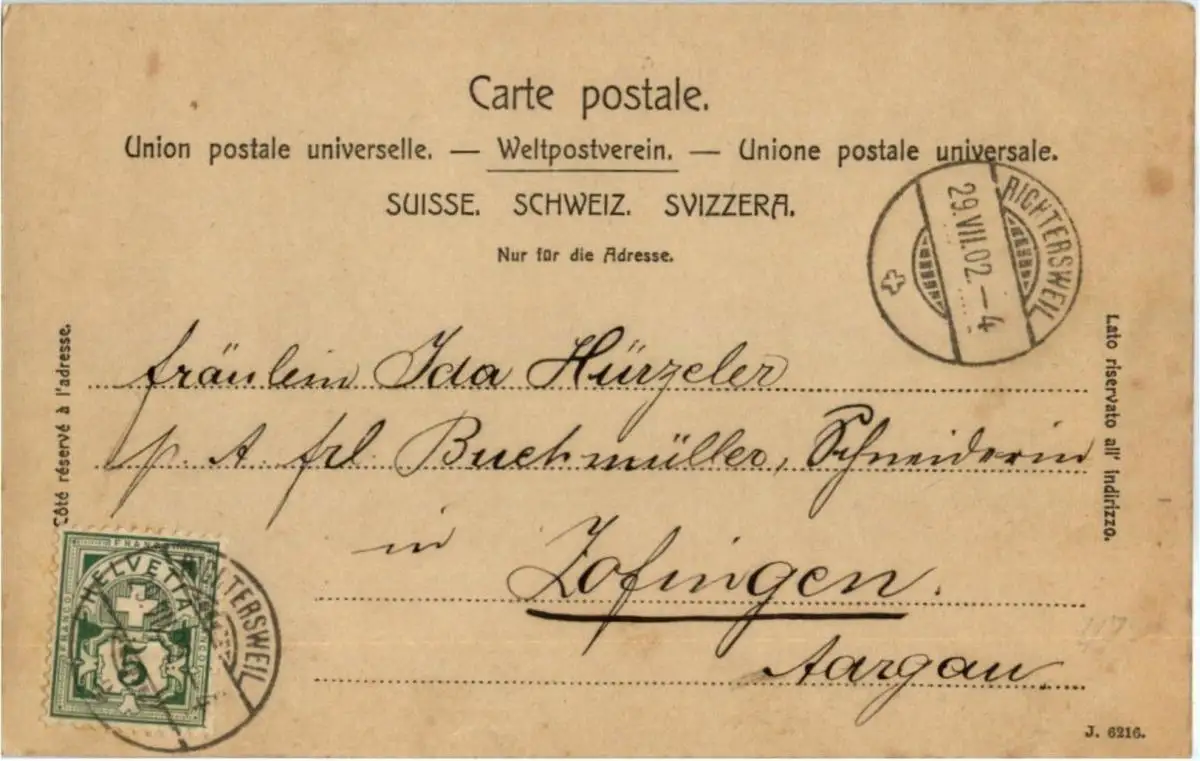 Carte postale.
Union postale universelle. — Weltpostverein. — Unione postale universale.
SUISSE. SCHWEIZ. SVIZZERA.
Nur für die Adresse.
RICHTERSWEIL
29.VII.02.–4
Côté réservé à l'adresse.
Lato riservato all' indirizzo.
Fräulein Ida Hürzeler
p. A. Frl. Buchmüller, Schneiderin
in Zofingen.
Aargau
FRANCO
HELVETIA
5
RICHTERSWEIL
J. 6216.